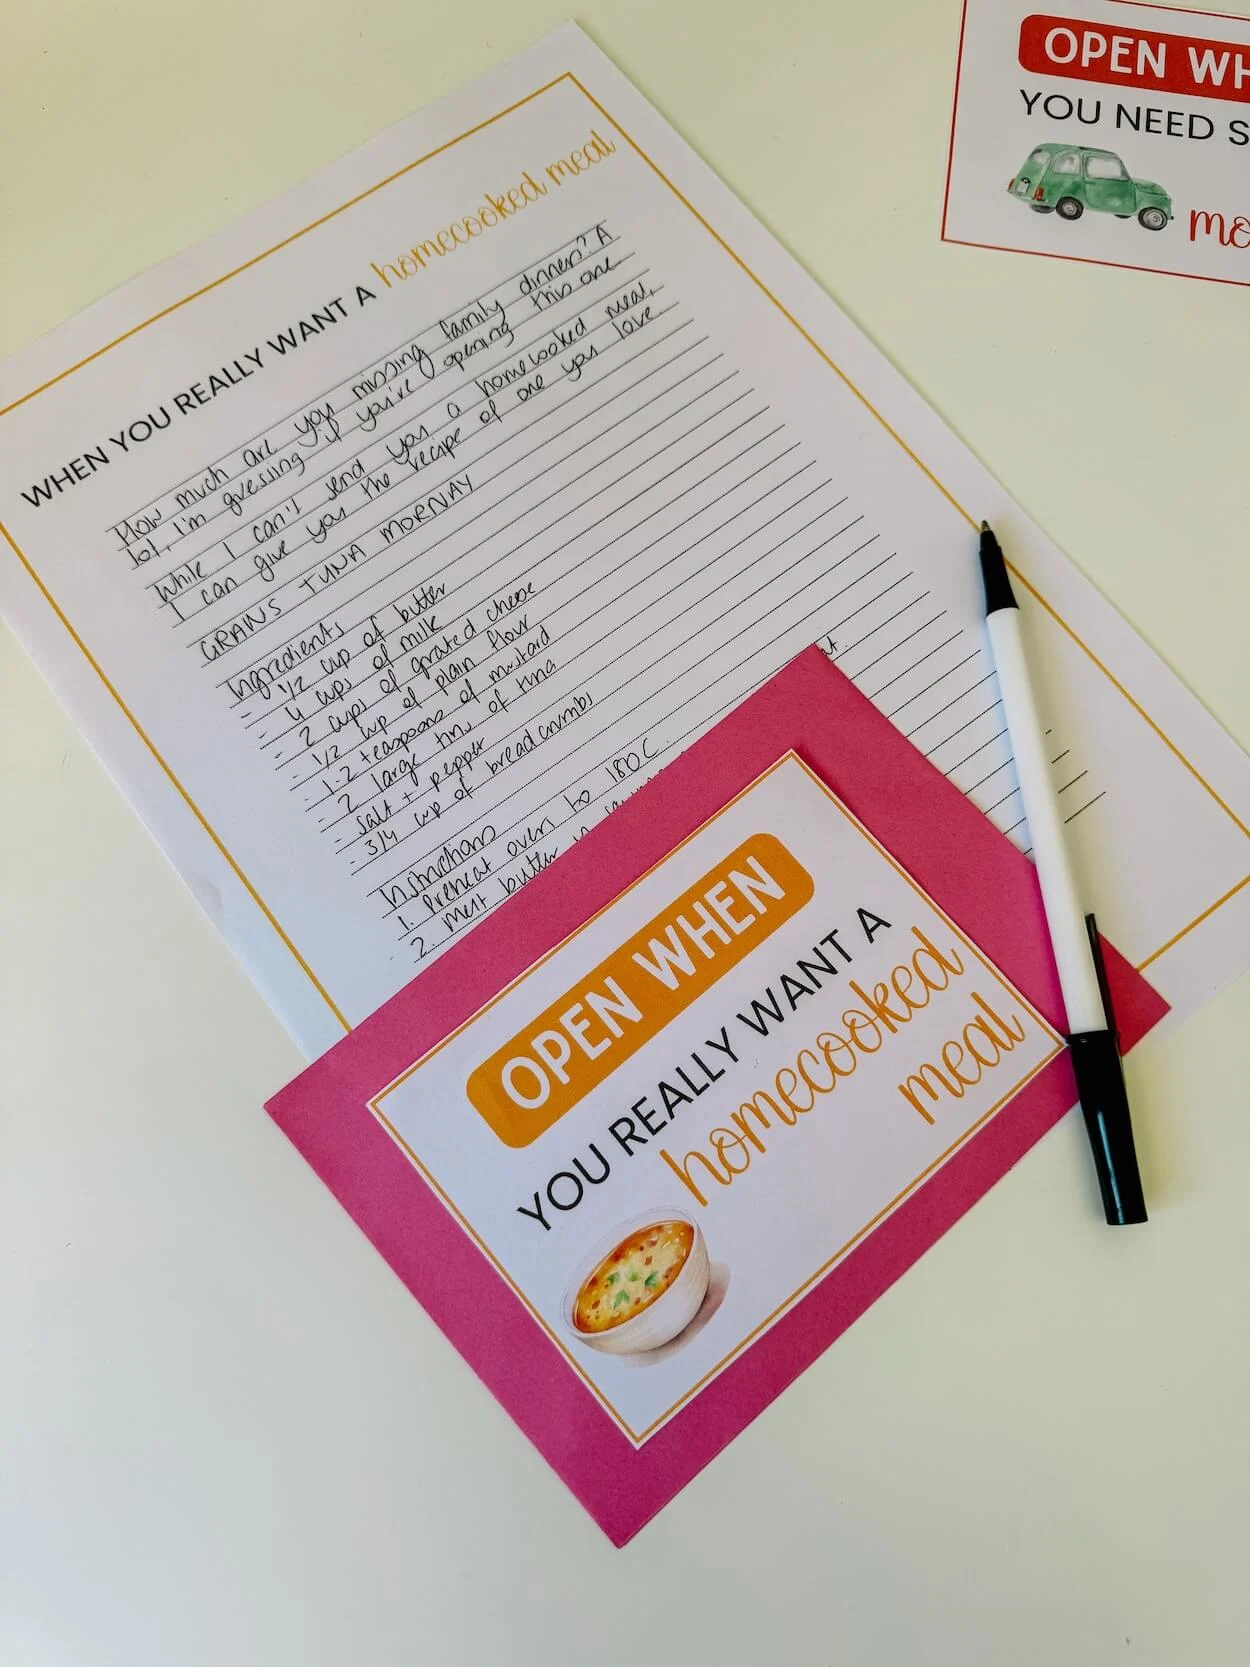 WHEN YOU REALLY WANT A homecooked meal
How much are you missing family dinner? A
lot, I'm guessing if you've opening this one.
While I can't send you a homecooked meal,
I can give you the recipe of one you love.
GRANS TUNA MORNAY
Ingredients
- 1/2 cup of butter
- 4 cups of milk
- 2 cups of grated cheese
- 1/2 cup of plain flour
- 1-2 teaspoons of mustard
- 2 large tins of tuna
- salt + pepper
- 3/4 cup of breadcrumbs
Instructions
1. Preheat oven to 180C.
2. Melt butter in
OPEN WHEN
YOU REALLY WANT A
homecooked
meal
OPEN WH
YOU NEED S
mo